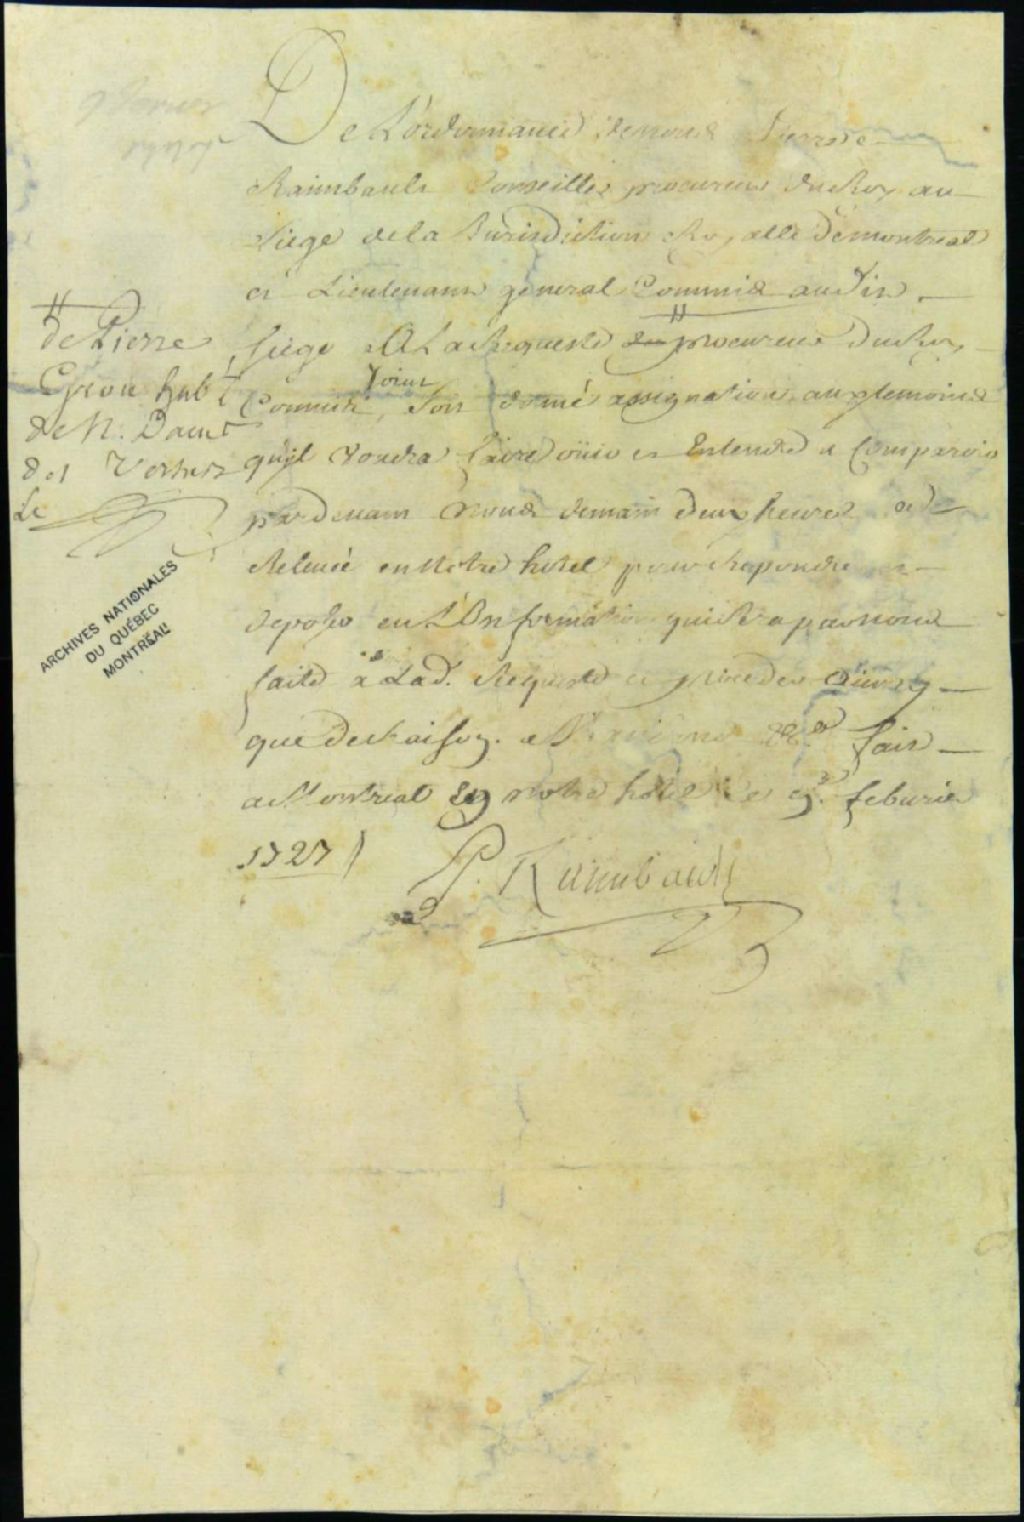 De L'ordonnance de nous Pierre
Raimbault Conseiller procureur du Roy au
siege de la Jurisdiction Royalle de montreal
et Lieutenant general Commis audit
siege A La Requeste du procureur du Roy
Commis, Soit donné assignation aux temoins
qu'jl voudra faire ouir et Entendre a Comparoir
pardevant Nous demain deux heures de
Relevé en Notre hotel pour Repondre et
deposer en L'Information qui sera par nous
faite a Lad. Requeste
que de Raison. fait
a Montreal En notre hotel Le febvrier
1727
P. Raimbault
de Pierre
hab^t
de N. Dame
des Vertus
Le
ARCHIVES NATIONALES
DU QUÉBEC
MONTRÉAL